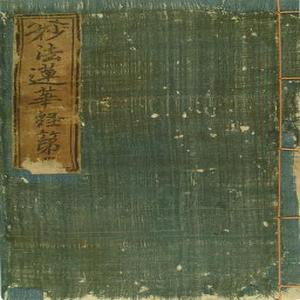 妙法蓮華經第